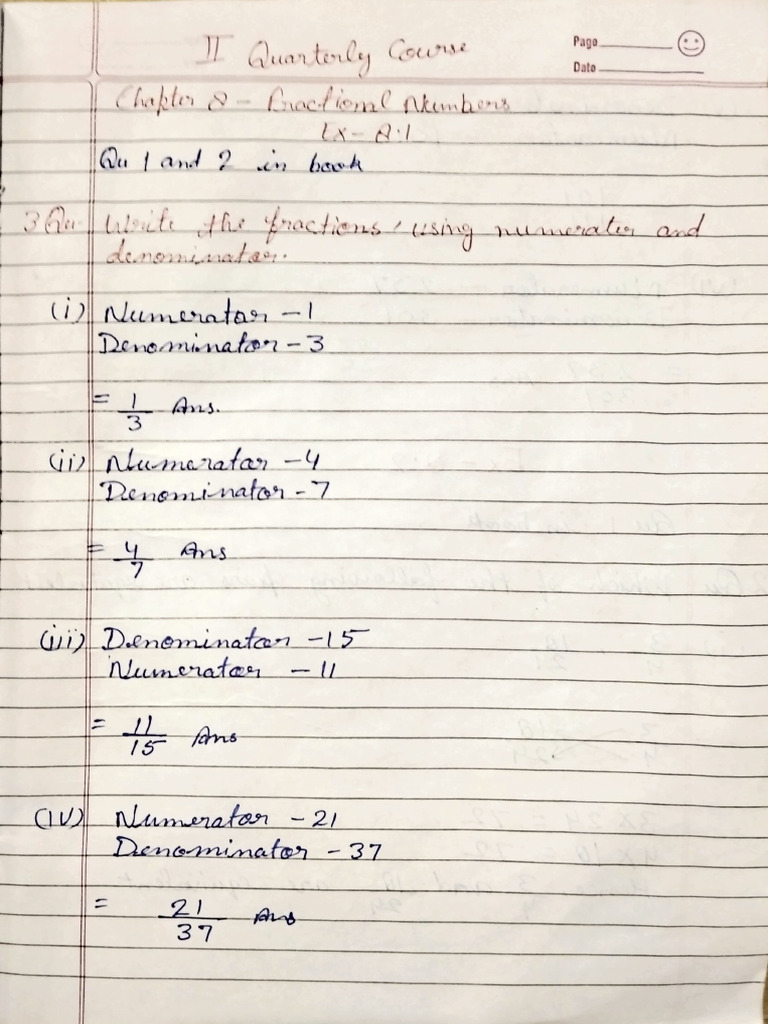 II Quarterly Course
Page
Date
Chapter 8 - Fractional Numbers
Ex- 8.1
Qu 1 and 2 in book
3 Qu. Write the fractions, using numerator and
denominator.
(i) Numerator - 1
Denominator - 3
= 1/3 Ans.
(ii) Numerator - 4
Denominator - 7
= 4/7 Ans
(iii) Denominator - 15
Numerator - 11
= 11/15 Ans
(iv) Numerator - 21
Denominator - 37
= 21/37 Ans